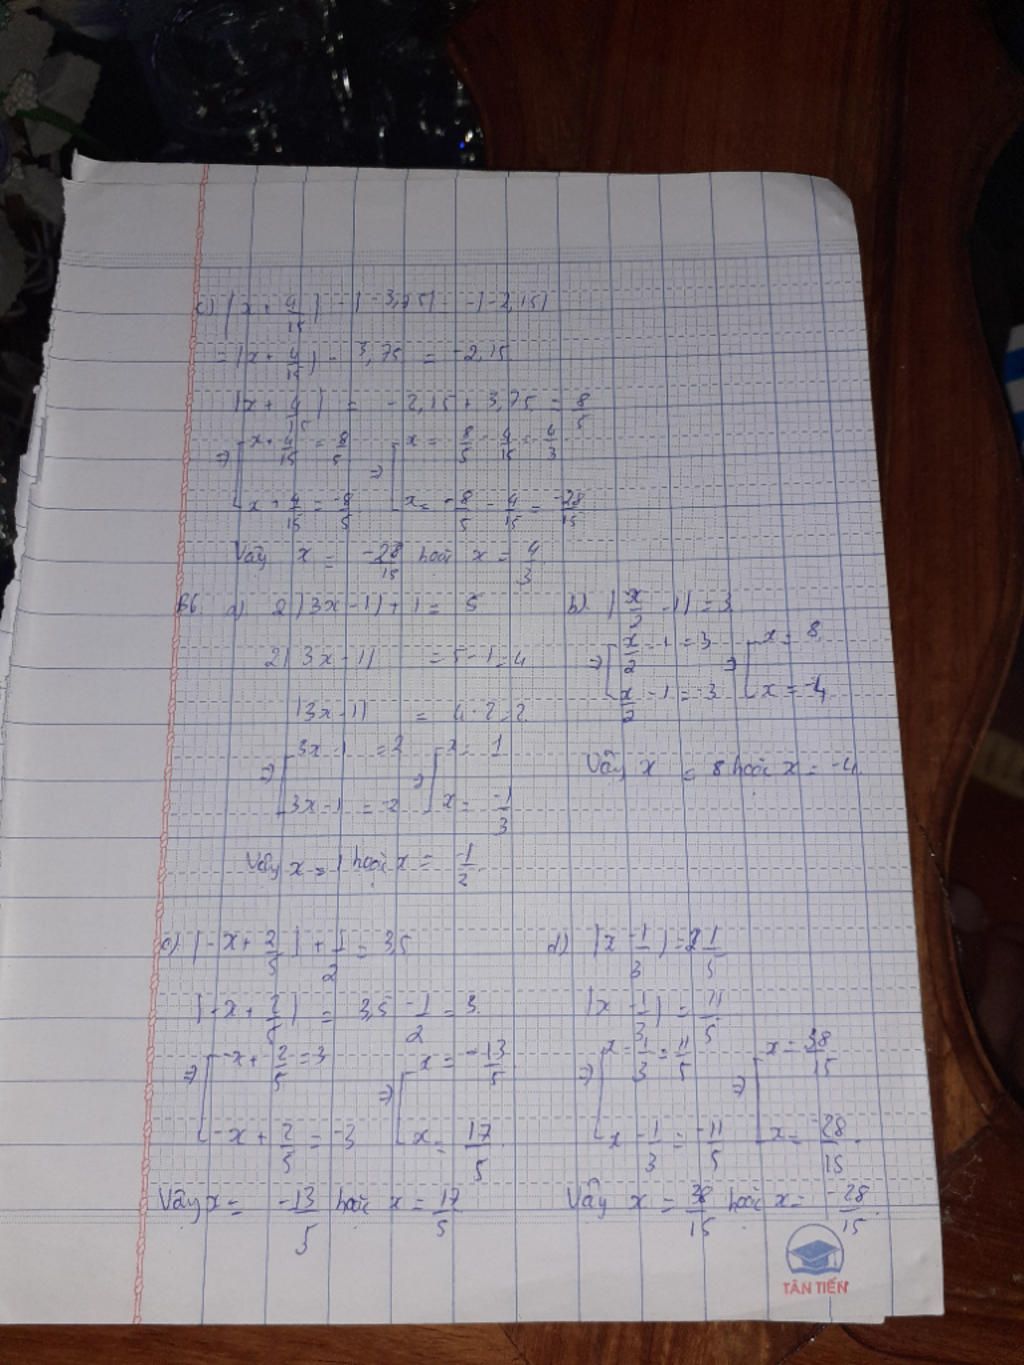 c) |x + 4/15| - |-3,75| = -|-2,15|
= |x + 4/15| - 3,75 = -2,15
|x + 4/15| = -2,15 + 3,75 = 8/5
⇒ [ x + 4/15 = 8/5 ⇒ [ x = 8/5 - 4/15 = 4/3
x + 4/15 = -8/5 x = -8/5 - 4/15 = -28/15
Vậy x = -28/15 hoặc x = 4/3
B6 a) 2|3x-1| + 1 = 5
2|3x-1| = 5-1=4
|3x-1| = 4:2=2
⇒ [ 3x-1 = 2 ⇒ [ x = 1
3x-1 = -2 x = -1/3
Vậy x = 1 hoặc x = -1/2
b) |x/2 - 1| = 3
⇒ [ x/2 - 1 = 3 ⇒ [ x = 8
x/2 - 1 = -3 x = -4
Vậy x = 8 hoặc x = -4
c) |-x + 2/5| + 1/2 = 3,5
|-x + 2/5| = 3,5 - 1/2 = 3
⇒ [ -x + 2/5 = 3 ⇒ [ x = -13/5
-x + 2/5 = -3 x = 17/5
Vậy x = -13/5 hoặc x = 17/5
d) |x - 1/3| = 2 1/5
|x - 1/3| = 11/5
⇒ [ x - 1/3 = 11/5 ⇒ [ x = 38/15
x - 1/3 = -11/5 x = -28/15
Vậy x = 38/15 hoặc x = -28/15
TÂN TIẾN